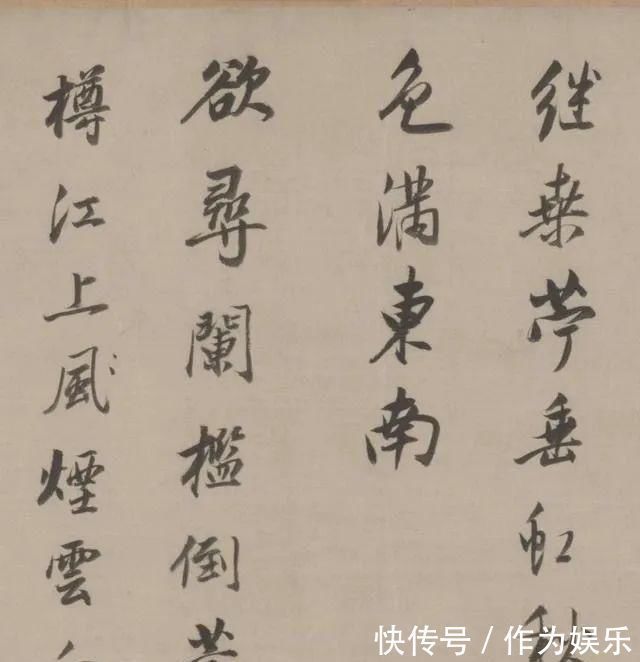 继桒苧垂虹秋
色滿東南
欲尋闌檻倒
樽江上風煙雲
快传号/作为娱乐